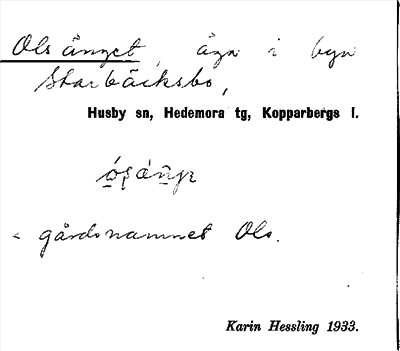 Ols änget, äga i byn
Starbäcksbo,
Husby sn, Hedemora tg, Kopparbergs l.
< gårdsnamnet Ols.
Karin Hessling 1933.